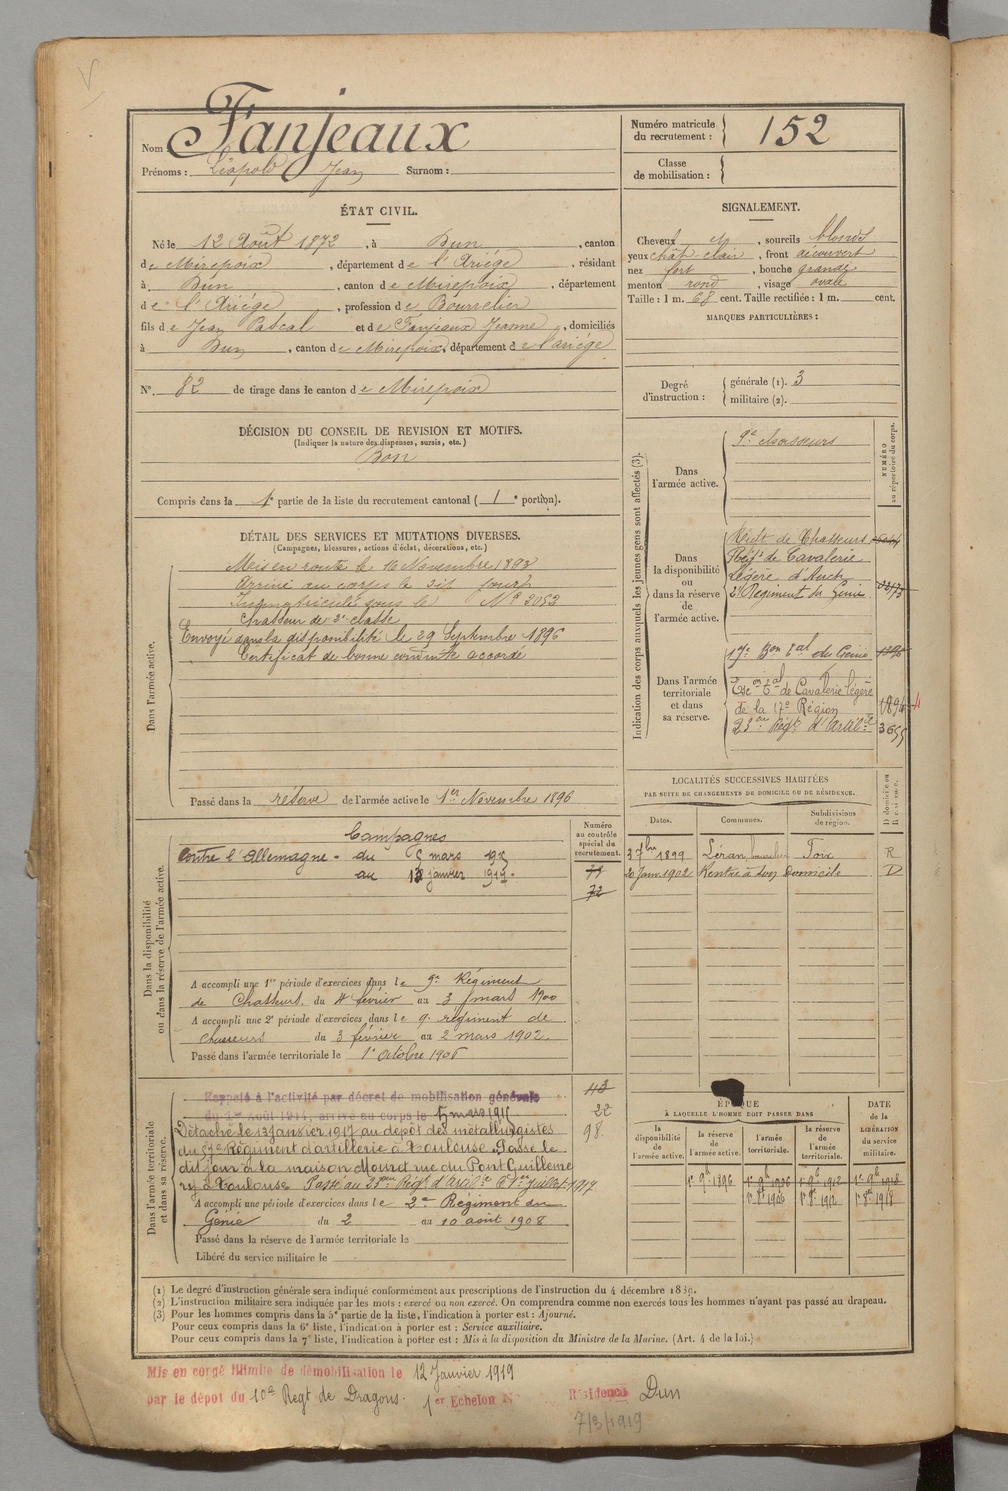 Nom Fanjeaux
Prénoms : Léopold Jean Surnom :
Numéro matricule du recrutement : 152
Classe de mobilisation :
ÉTAT CIVIL.
Né le 12 Août 1872, à Dun, canton
de Mirepoix, département de l'Ariège, résidant
à Dun, canton de Mirepoix, département
de l'Ariège, profession de Bourrelier
fils de Jean Pascal et de Fanjeaux Jeanne, domiciliés
à Dun, canton de Mirepoix, département de l'ariége
N° 82 de tirage dans le canton de Mirepoix
SIGNALEMENT.
Cheveux, sourcils blonds
yeux chât. clair, front découvert
nez fort, bouche grande
menton rond, visage ovale
Taille : 1 m. 68 cent. Taille rectifiée : 1 m. cent.
MARQUES PARTICULIÈRES :
Degré d'instruction : générale (1). 3
militaire (2).
DÉCISION DU CONSEIL DE REVISION ET MOTIFS.
(Indiquer la nature des dispenses, sursis, etc.)
Bon
Compris dans la 1e partie de la liste du recrutement cantonal (1e portion).
DÉTAIL DES SERVICES ET MUTATIONS DIVERSES.
(Campagnes, blessures, actions d'éclat, décorations, etc.)
Dans l'armée active.
Mis en route le 16 Novembre 1893
Arrivé au corps le dit jour
Immatriculé sous le N° 2052
Chasseur de 2e classe
Envoyé dans la disponibilité le 29 Septembre 1896
Certificat de bonne conduite accordé
Passé dans la réserve de l'armée active le 1er Novembre 1896
Indication des corps auxquels les jeunes gens sont affectés (3).
NUMÉRO au répertoire du corps.
Dans l'armée active.
9e chasseurs
Dans la disponibilité ou dans la réserve de l'armée active.
Régt de Chasseurs
Régt de Cavalerie
légère d'Auch
2e Régiment du Génie
Dans l'armée territoriale et dans sa réserve.
17e Bon tal du Génie
Esc on tal de Cavalerie légère
de la 17e Région 1894
23e Régt d'Artilie 3655
LOCALITÉS SUCCESSIVES HABITÉES
PAR SUITE DE CHANGEMENTS DE DOMICILE OU DE RÉSIDENCE.
Dates. Communes. Subdivisions de région. D domicile ou R résidence.
3 7bre 1899 Léran Foix R
20 Janv. 1902 Rentré à son Domicile D
Dans la disponibilité ou dans la réserve de l'armée active.
Numéro au contrôle spécial du recrutement.
Campagnes
Contre l'Allemagne - du 5 mars 1915
au 13 janvier 1917.
71
72
A accompli une 1re période d'exercices dans le 9e Régiment
de Chasseurs du 4 février au 3 mars 1900
A accompli une 2e période d'exercices dans le 9e régiment de
chasseurs du 3 février au 2 mars 1902
Passé dans l'armée territoriale le 1er octobre 1906
Dans l'armée territoriale et dans sa réserve.
Rappelé à l'activité par décret de mobilisation générale
du 1er Août 1914, arrivé au corps le 5 mars 1915
22
98
Détaché le 13 Janvier 1917 au dépôt des métallurgistes
du 57e Régiment d'artillerie à Toulouse. Passe le
dit jour à la maison Mouret rue du Pont Guilleme
ry à Toulouse Passé au 23me Régt d'Artilie le 1er juillet 1917
A accompli une période d'exercices dans le 2e Régiment du
Génie du 2 au 10 août 1908
Passé dans la réserve de l'armée territoriale le
Libéré du service militaire le
ÉPOQUE
À LAQUELLE L'HOMME DOIT PASSER DANS
la disponibilité de l'armée active. la réserve de l'armée active. l'armée territoriale. la réserve de l'armée territoriale. DATE de la LIBÉRATION du service militaire.
1er 9bre 1896 1er 9bre 1906 1er 9bre 1912 1er 9bre 1918
1er 8bre 1906 1er 8bre 1912 1er 8bre 1918
(1) Le degré d'instruction générale sera indiqué conformément aux prescriptions de l'instruction du 4 décembre 1889.
(2) L'instruction militaire sera indiquée par les mots : exercé ou non exercé. On comprendra comme non exercés tous les hommes n'ayant pas passé au drapeau.
(3) Pour les hommes compris dans la 5e partie de la liste, l'indication à porter est : Ajourné.
Pour ceux compris dans la 6e liste, l'indication à porter est : Service auxiliaire.
Pour ceux compris dans la 7e liste, l'indication à porter est : Mis à la disposition du Ministre de la Marine. (Art. 4 de la loi.)
Mis en congé illimité de démobilisation le 12 Janvier 1919
par le dépôt du 10e Regt de Dragons. 1er Echelon N° Résidence Dun
7/3/1919